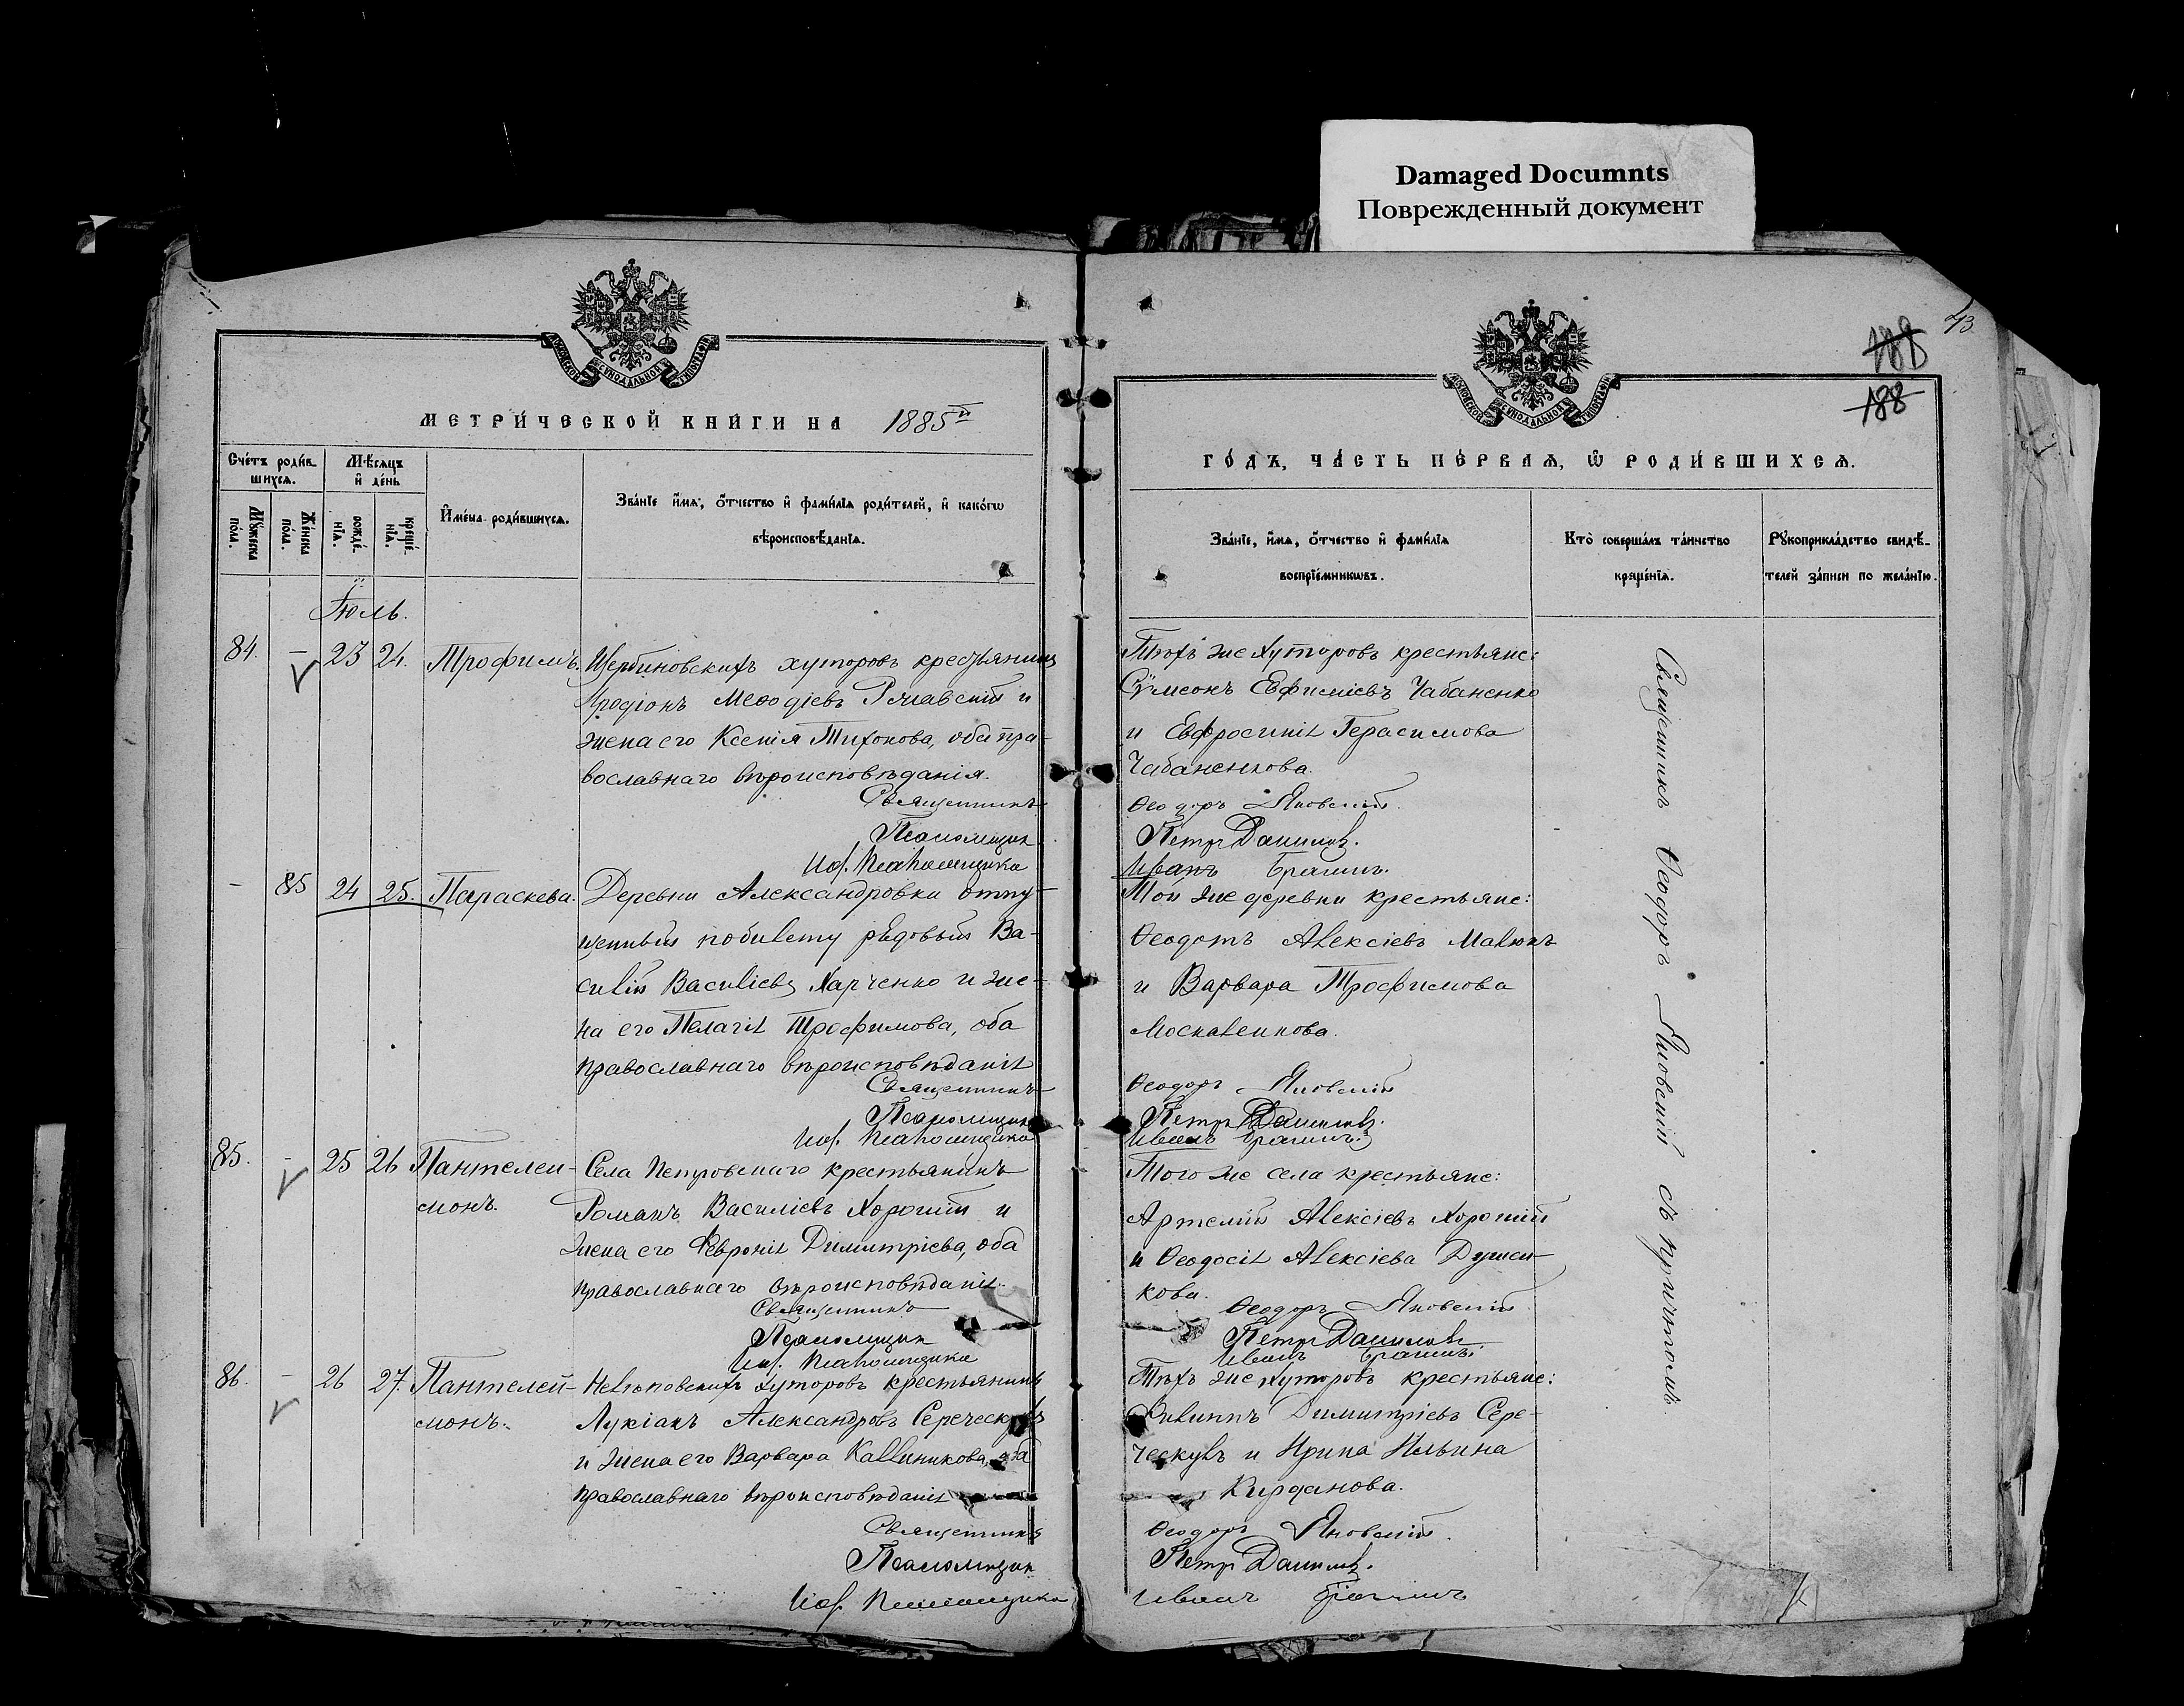 Damaged Documnts
Поврежденный документ
43
188
188
МЕТРИЧЕСКОЙ КНИГИ НА 1885й
ГОДЪ, ЧАСТЬ ПЕРВАЯ, Ѡ РОДИВШИХСЯ.
Счетъ родив-
шихся.
Мѣсяцъ
и день
Мꙋжеска
пола.
Женска
пола.
рожде-
нїя.
креще-
нїя.
Имена родившихся.
Званїе имя, ѻтчество и фамилїя родителей, и какогѡ
вѣроисповѣданїя.
Званїе, имя, ѻтчество и фамилїя
воспрїемникѡвъ.
Кто совершалъ таинство
крещенїя.
Рꙋкоприкладство свидѣ-
телей записи по желанїю.
Іюль.
84. - 23 24. Трофимъ. Щербиновскихъ хуторовъ крестьянинъ
Иродіонъ Меѳодіевъ и
жена его Ксенія Тихонова, оба пра-
вославнаго вѣроисповѣданія.
Священникъ
Псаломщик
Иоф. Псаломщика
Тѣхъ же хуторовъ крестьяне:
Сѵмеонъ Евфиміевъ Чабаненко
и Евфросинія Герасимова
Чабаненкова.
Ѳеодоръ Яновскій.
Петръ Данилов.
Иванъ
- 85 24 25. Параскева. Деревни Александровки отпу-
щенный по билету рядовый Ва-
силій Василіевъ Харченко и же-
на его Пелагія Трофимова, оба
православнаго вѣроисповѣданія
Священникъ
Псаломщик
Иоф. Псаломщика
Той же деревни крестьяне:
Ѳеодотъ Алексіевъ Малюкъ
и Варвара Трофимова
Москаленкова.
Ѳеодоръ Яновскій
Петръ Данилов.
Иванъ
85. - 25 26 Пантелеи-
монъ.
Села Петровскаго крестьянинъ
Романъ Василіевъ Хорошій и
жена его Февронія Димитріева, оба
православнаго вѣроисповѣданія.
Священникъ
Псаломщик
Иоф. Псаломщика
Того же села крестьяне:
Артемій Алексіевъ Хорошій
и Ѳеодосія Алексіева
кова.
Ѳеодоръ Яновскій
Петръ Данилов
Иванъ
86. - 26 27. Пантелей-
монъ.
хуторовъ крестьянинъ
Лукіанъ Александровъ Сереческулъ
и жена его Варвара Каллиникова, оба
православнаго вѣроисповѣданія
Священникъ
Псаломщик
Иоф. Псаломщика
Тѣхъ же хуторовъ крестьяне:
Филиппъ Димитріевъ Сере-
ческулъ и Ирина Ильина
Курданова.
Ѳеодоръ Яновскій.
Петръ Данилов.
Иванъ
Священникъ Ѳеодоръ Яновскій съ причтомъ